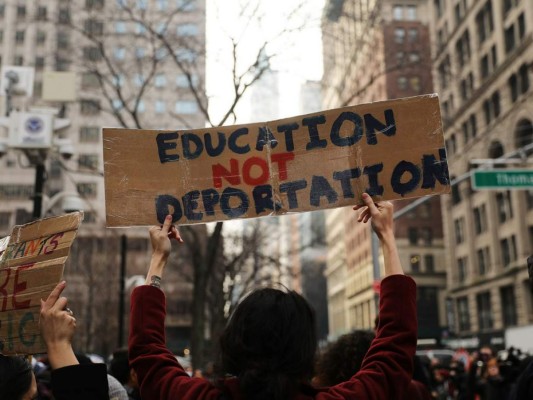 EDUCATION
NOT
DEPORTATION
ANTS
RE
Thoma